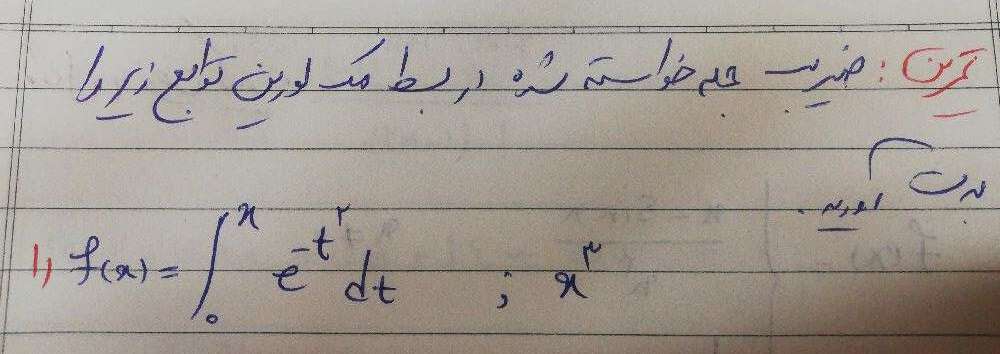 تمرین: ضریب جمله خواسته شده در بسط مک لورین توابع زیر را
بدست آورید.
1) f(x) = ∫₀ˣ e^(-t^۲) dt ; x^۳